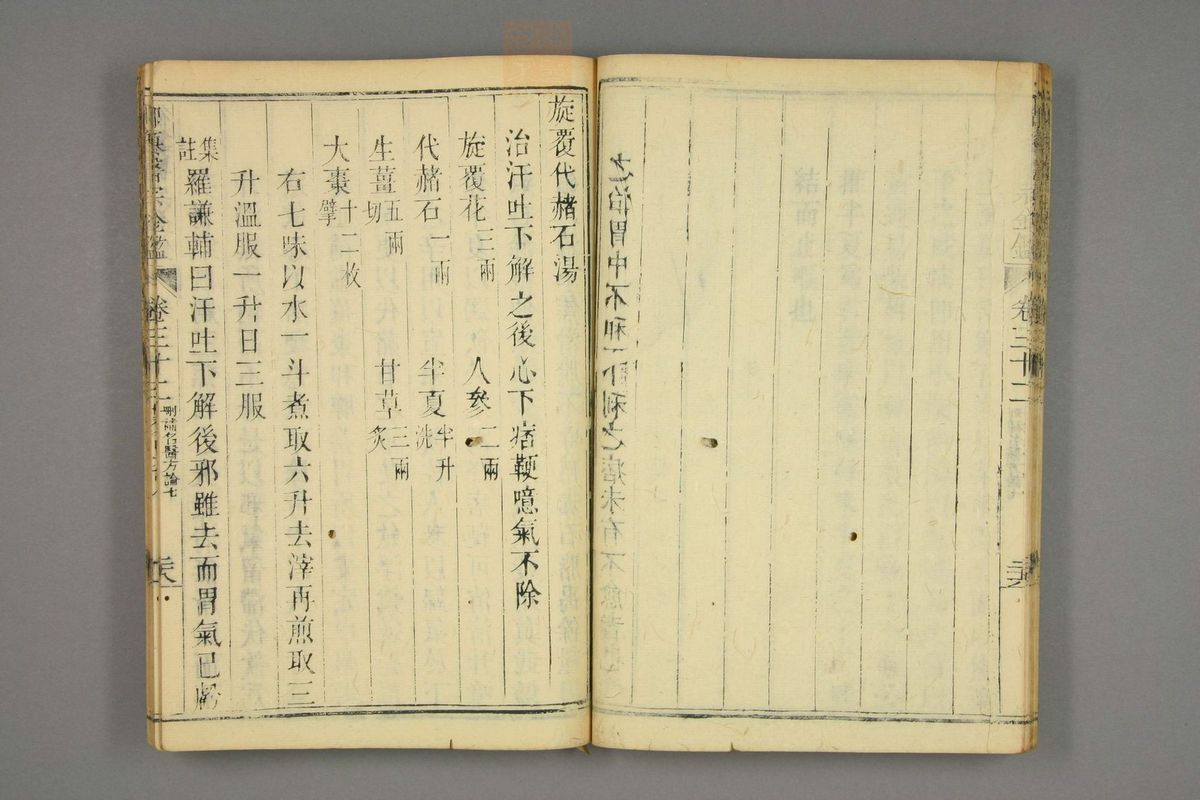 之治胃中不和下利之痞未有不愈者也
旋覆代赭石湯
治汗吐下解之後心下痞鞕噫氣不除
旋覆花三兩 人參二兩
代赭石一兩 半夏半升洗
生薑五兩切 甘草三兩炙
大棗十二枚擘
右七味以水一斗煮取六升去滓再煎取三
升溫服一升日三服
集註 羅謙輔曰汗吐下解後邪雖去而胃氣已虧
御纂醫宗金鑑 卷三十二 刪補名醫方論七
卷三十二